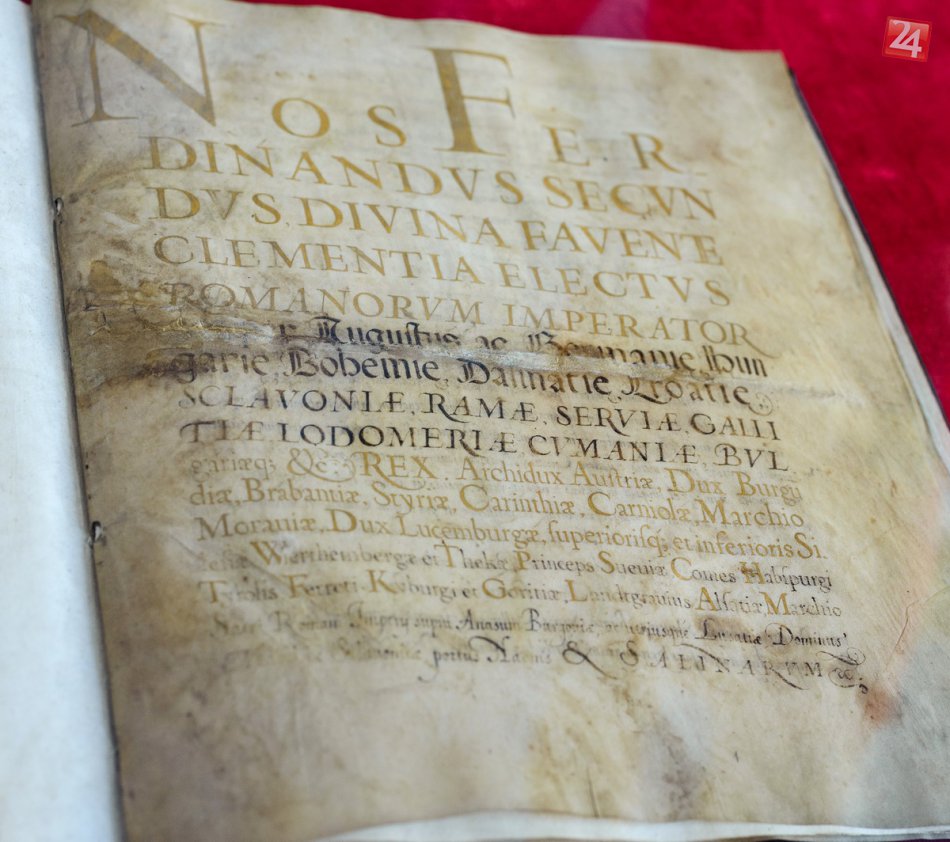 NOS FER
DINANDVS SECVN
DVS, DIVINA FAVENTE
CLEMENTIA ELECTVS
ROMANORVM IMPERATOR
Augustus ac Germanie, Hun
garie, Bohemie, Dalmatie, Croatie,
SCLAVONIÆ, RAMÆ, SERVIÆ GALLI
TIÆ LODOMERIÆ CVMANIÆ, BVL
gariæq; &c; REX. Archidux Austriæ, Dux Burgū
diæ, Brabantiæ, Styriæ, Carinthiæ, Carniolæ, Marchio
Morauiæ, Dux Lucemburgæ, superiorisq; et inferioris Si
Wierthembergæ et Thekæ, Princeps Sueuiæ Comes Habspurgi
Tyrolis Ferreti Kyburgi et Goritiæ, Landtgrauius Alsatiæ Marchio
Sacri Romani Imperij supra Anasum Burgoviæ, ac utriusque Lusatiæ Dominus
portus Naonis & SALINARVM &c.
24